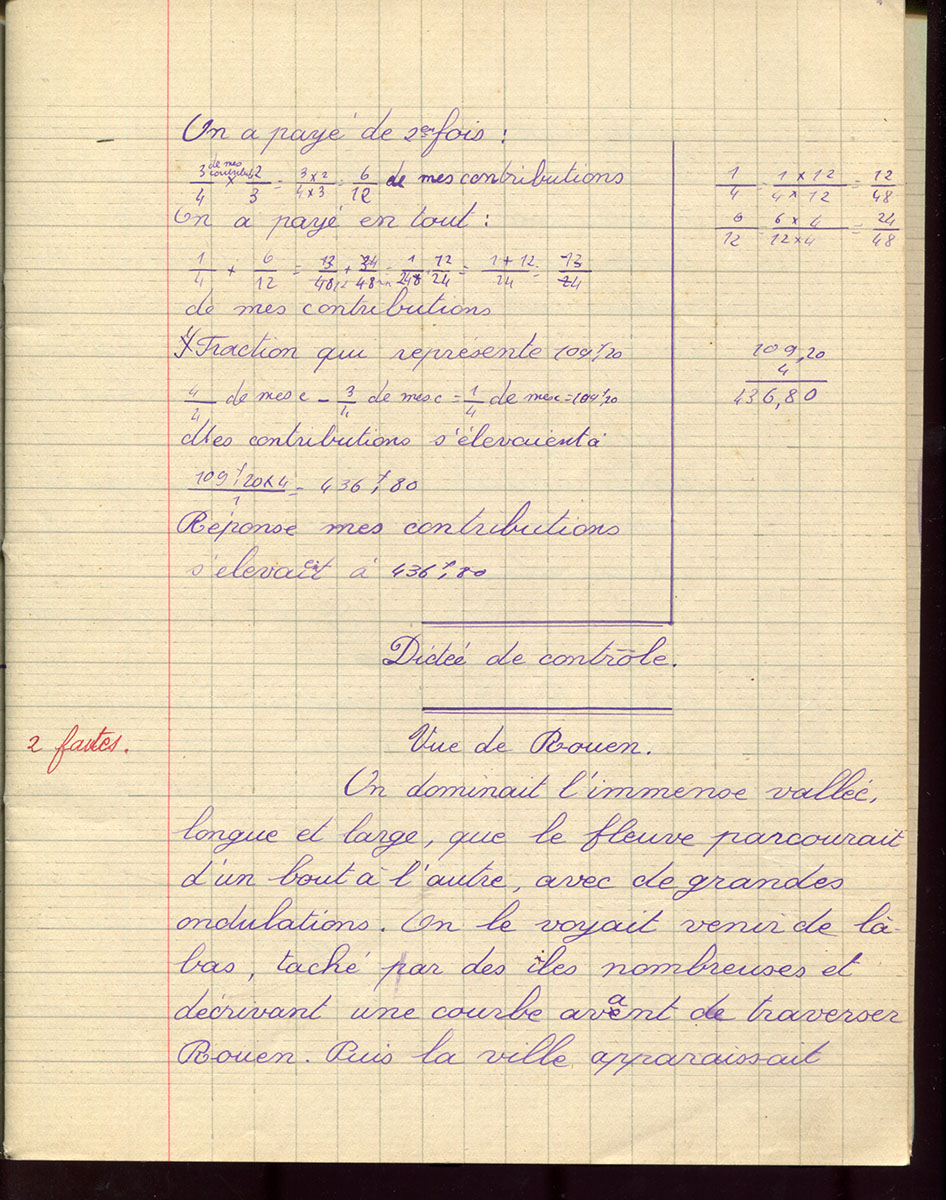 On a payé de 2em fois :
3/4 de mes contribut. × 2/3 = 3 × 2 / 4 × 3 = 6/12 de mes contributions
On a payé en tout :
1/4 + 6/12 = 1 + 12 / 24 = 13/24
de mes contributions
Fraction qui represente 109f,20
4/4 de mes c – 3/4 de mes c = 1/4 de mes c = 109f,20
Mes contributions s'élevaient à
109f,20 × 4 / 1 = 436f,80
Réponse mes contributions
s'élevait à 436f,80
1/4 = 1 × 12 / 4 × 12 = 12/48
6/12 = 6 × 4 / 12 × 4 = 24/48
109,20
4
436,80
Dictée de contrôle.
2 fautes.
Vue de Rouen.
On dominait l'immense vallée,
longue et large, que le fleuve parcourait
d'un bout à l'autre, avec de grandes
ondulations. On le voyait venir de là-
bas, taché par des îles nombreuses et
décrivant une courbe avant de traverser
Rouen. Puis la ville apparaissait